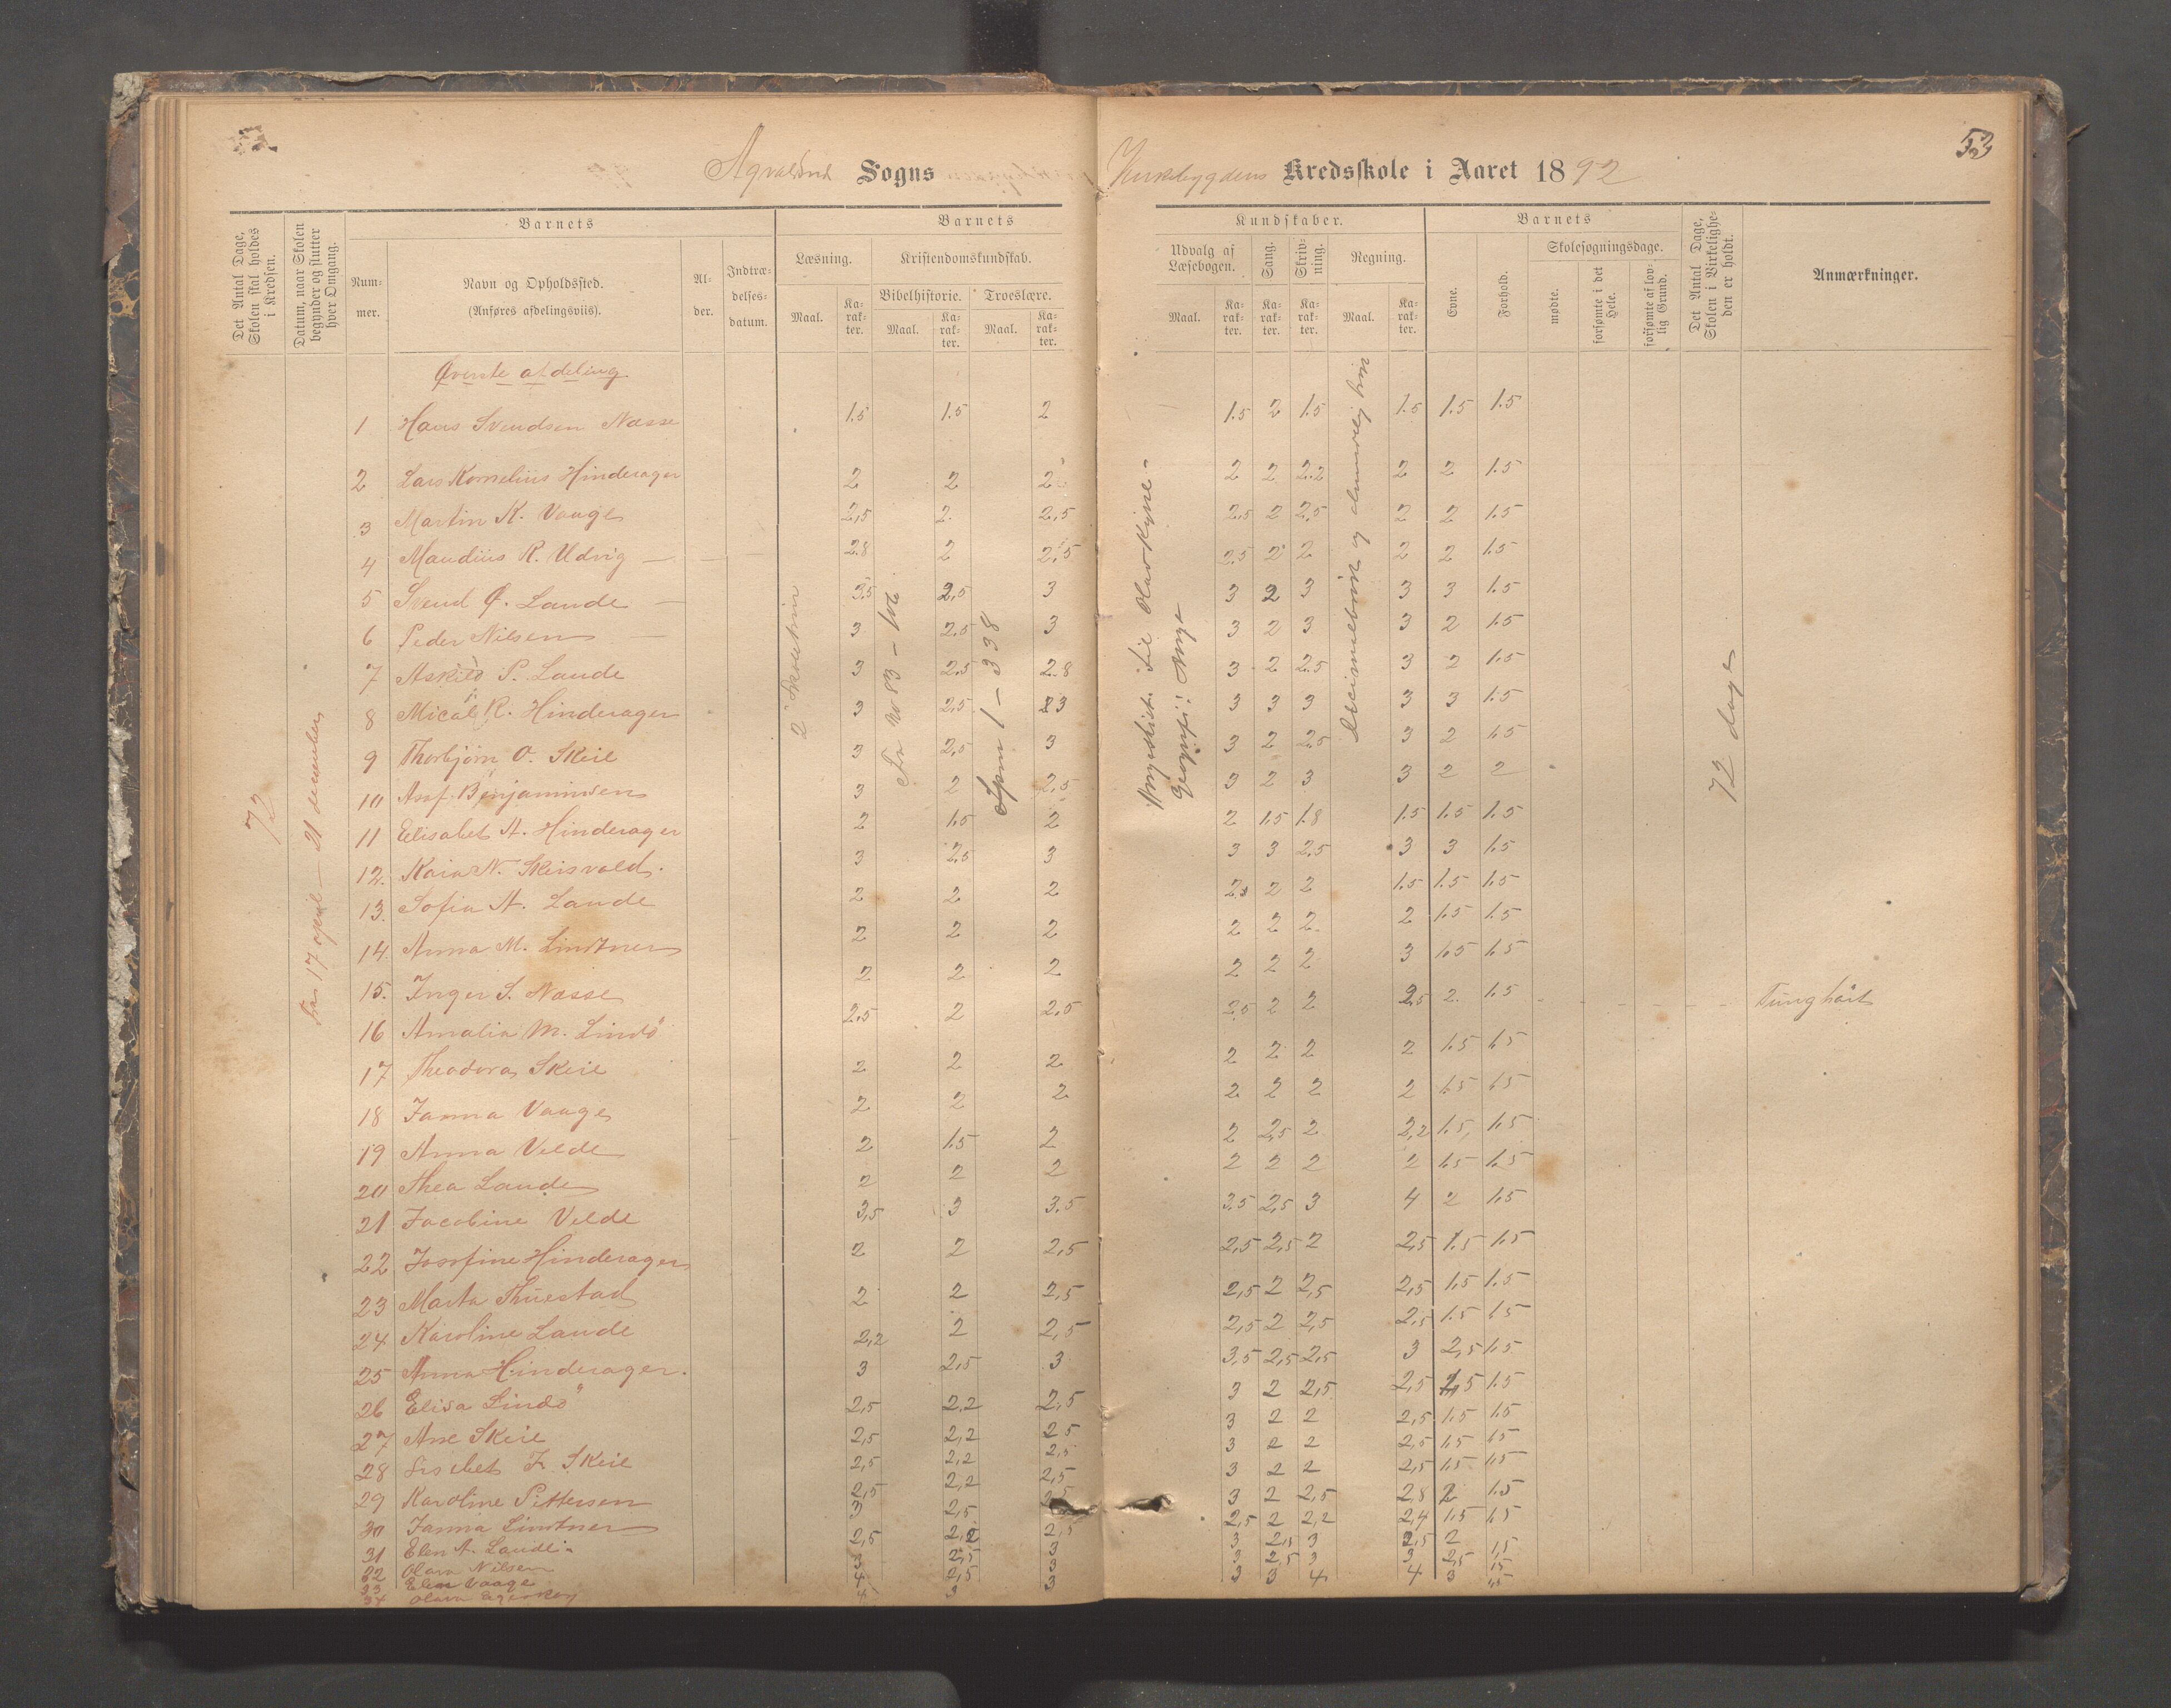 53
Sogns
Kredsskole i Aaret 1892
Det Antal Dage, Skolen skal holdes i Kredsen.
Datum, naar Skolen begynder og slutter hver Omgang.
Barnets
Barnets
Kundskaber.
Barnets
Num-mer.
Navn og Opholdssted.
(Anføres afdelingsviis).
Al-der.
Indtræ-delses-datum.
Læsning.
Kristendomskundskab.
Bibelhistorie.
Troeslære.
Maal.
Ka-rak-ter.
Maal.
Ka-rak-ter.
Maal.
Ka-rak-ter.
Udvalg af Læsebogen.
Sang.
Skriv-ning.
Regning.
Maal.
Ka-rak-ter.
Ka-rak-ter.
Ka-rak-ter.
Maal.
Ka-rak-ter.
Evne.
Forhold.
Skolesøgningsdage.
mødte.
forsømte i det Hele.
forsømte af lov-lig Grund.
Det Antal Dage, Skolen i Virkelighe-den er holdt.
Anmærkninger.
Øverste afdeling
72
Fra 17 april – 21 december
2 Skoletrin
Fra No 83 – 106
Spm 1 – 338
Geografi: Norge
72 dage
1 Hans Svendsen Næsse 1.5 1.5 2 1.5 2 1.5 1.5 1.5 1.5
2 Lars Kornelius Hinderager 2 2 2 2 2 2.2 2 2 1.5
3 Martin K. Vaage 2,5 2 2,5 2,5 2 2,5 2 2 1.5
4 Maudius R. Udvig 2.8 2 2,5 2.5 2 2 2 2 1.5
5 Svend Ø. Lande 3.5 2,5 3 3 2 3 3 3 1.5
6 Peder Nilsen 3 2.5 3 3 2 3 3 2 1.5
7 Askild P. Lande 3 2.5 2.8 3 2 2.5 3 2 1.5
8 Mical R. Hinderager 3 2,5 3 3 3 3 3 3 1.5
9 Thorbjørn O. Skeie 3 2,5 3 3 2 2.5 3 2 1.5
10 Benjaminsen 3 2 2,5 3 2 3 3 2 2
11 Elisabet A. Hinderager 2 1.5 2 2 1.5 1.8 1.5 1.5 1.5
12. Kaia N. Skeisvold. 3 2,5 3 3 3 2.5 3 3 1.5
13. Sofia A. Lande 2 2 2 2.5 2 2 1.5 1.5 1.5
14. Anna M. Lindtner 2 2 2 2 2 2 2 1.5 1.5
15. Inger S. Næsse 2 2 2 2 2 2 3 1.5 1.5
16 Amalia M. Lindö 2.5 2 2.5 2,5 2 2 2,5 2 1.5 Tunghört
17 Theodora Skeie 2 2 2 2 2 2 2 1.5 1.5
18 Janna Vaage 2 2 2 2 2 2 2 1.5 1.5
19 Anna Velde 2 1.5 2 2 2,5 2 2,2 1.5 1.5
20 Thea Lande 2 2 2 2 2 2 2 1.5 1.5
21 Jacobine Velde 3,5 3 3.5 3.5 2,5 3 4 2 1.5
22 Josefine Hinderager 2 2 2,5 2,5 2,5 2 2,5 1.5 1.5
23 Marta Thuestad 2 2 2,5 2,5 2 2,5 2,5 1.5 1.5
24 Karoline Lande 2,2 2 2,5 2,5 2 2,5 2,5 1.5 1.5
25 Anna Hinderager. 3 2,5 3 3,5 2,5 2,5 3 2,5 1.5
26 Elisa Lindö 2,5 2,2 2,5 3 2 2,5 2,5 1.5
27 Ane Skeie 2,5 2,2 2.5 3 2 2 2,5 1.5 1.5
28 Lisebet J. Skeie 2,5 2,2 2,5 3 2 2 2,5 1.5 1.5
29 Karoline Pettersen 2,5 2,2 2,5 3 2 2 2,5 1.5 1.5
30 Janna Lindtner 3 2,5 3 2 2,5 2,8 2 1.5
31 Elen A. Lande 2,5 2,2 2,5 2,5 2 2,2 2,4 1.5 1.5
32 Olava Nilsen 2,5 3 3 2,5 3 2,5 2
33 Elen Vaage 4 2,5 3 3 2,5 3 3 2,5 1,5
34 Olava 4 3 3 3 3 4 4 3 1,5